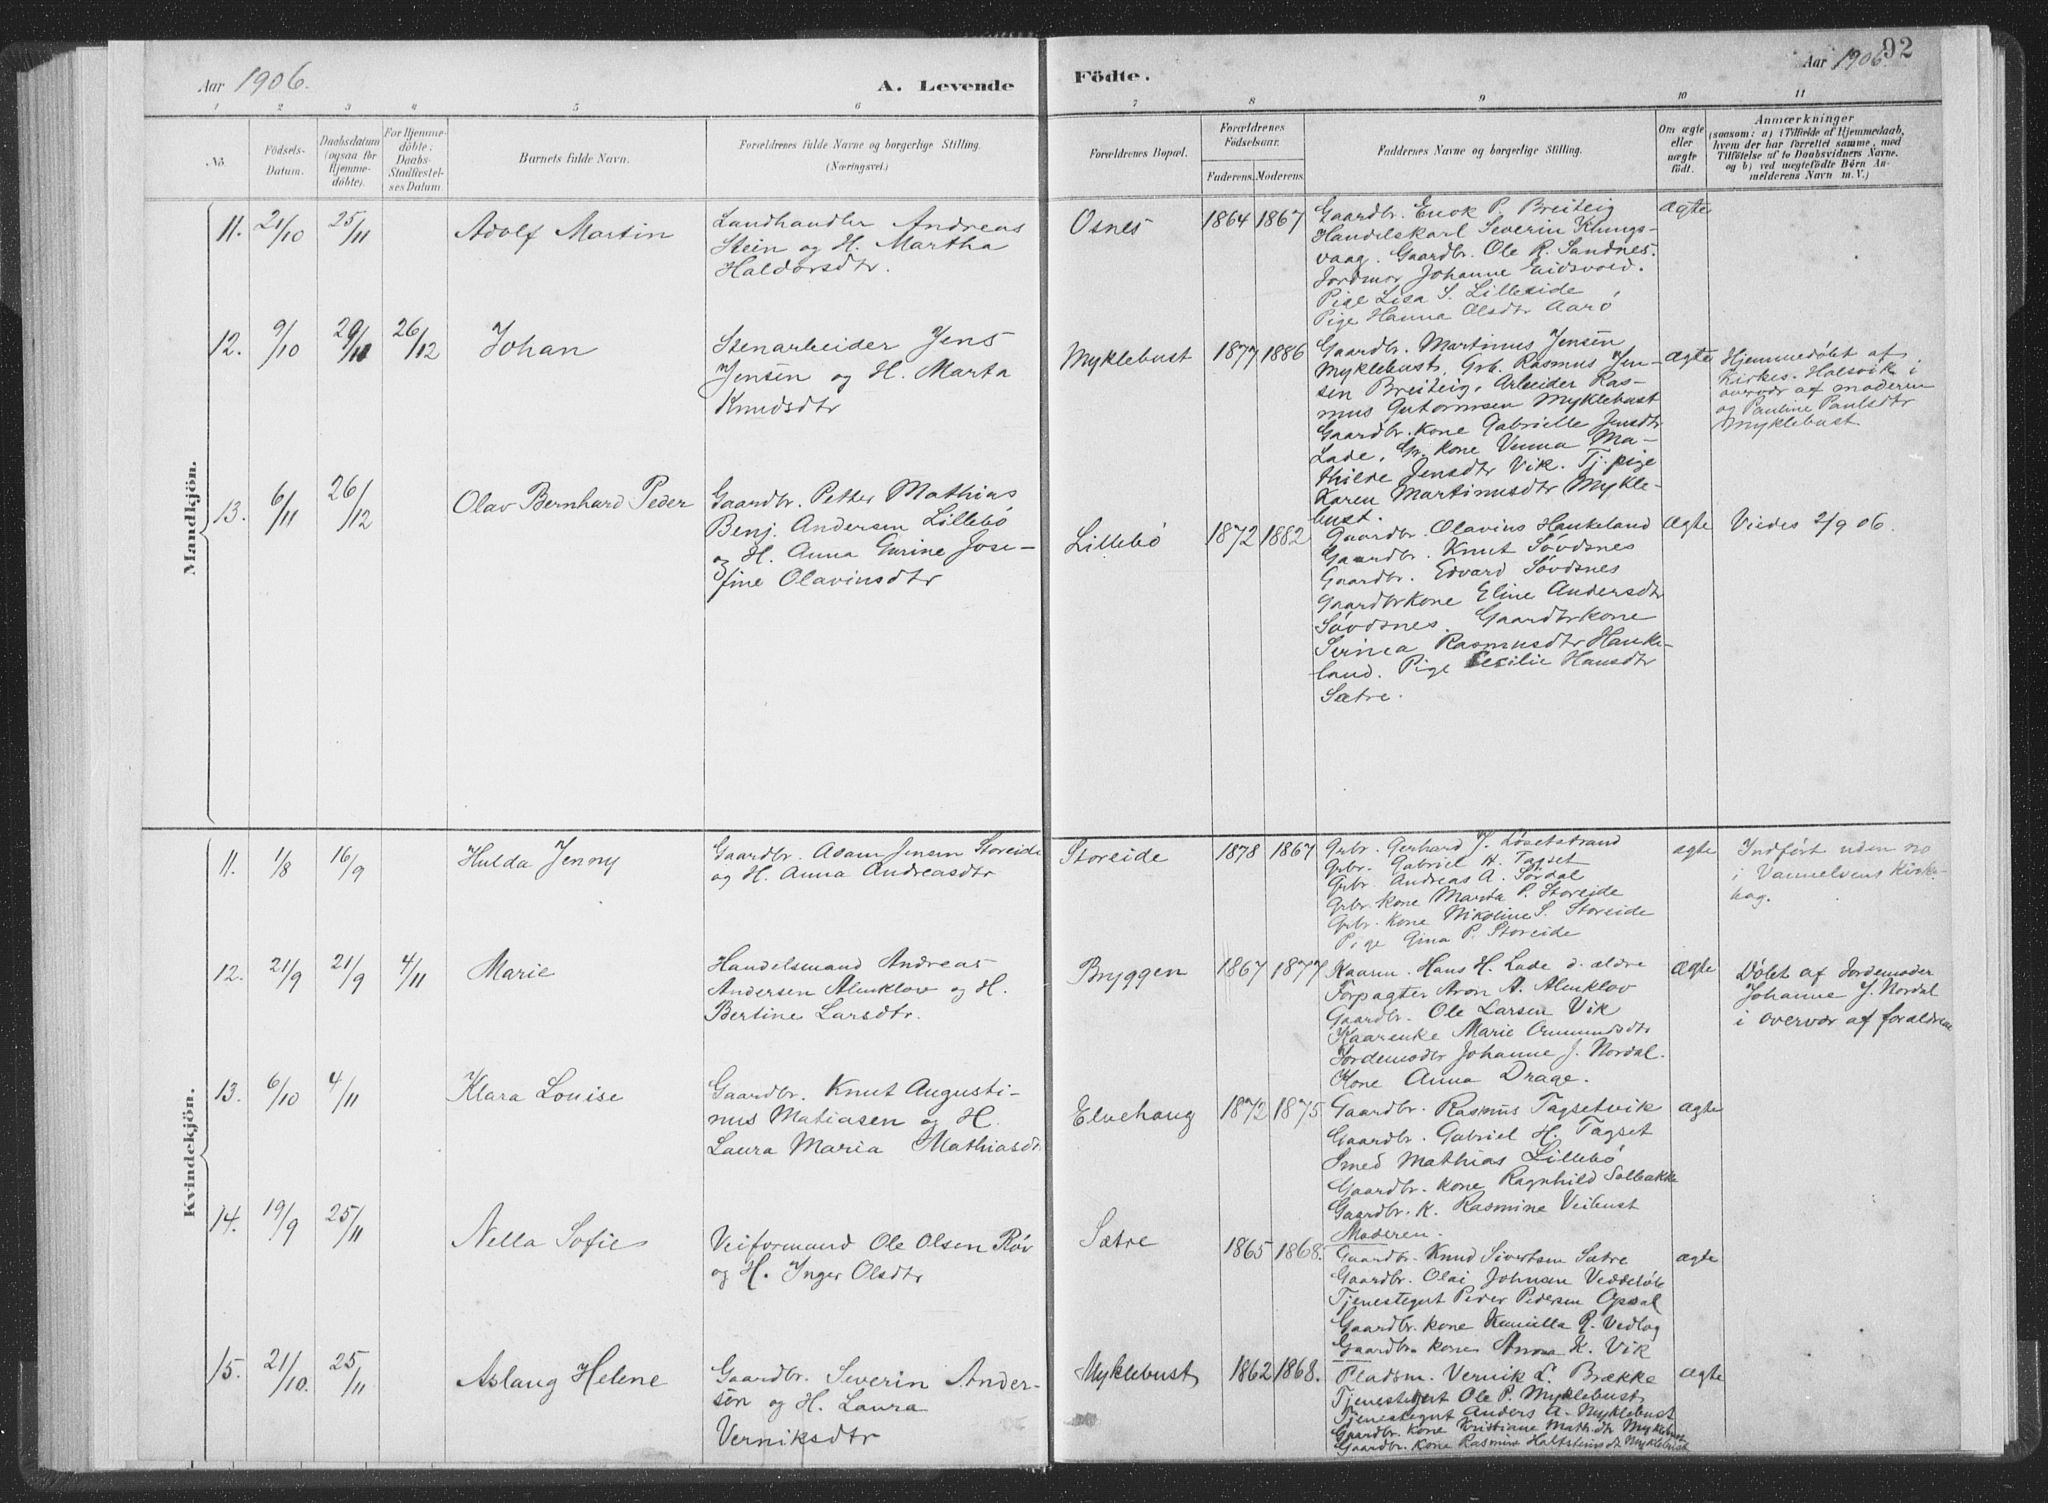 92
Aar 1906.
A. Levende
Födte.
Aar 1906.
1 2 3 4 5 6 7 8 9 10 11
No.
Födsels-Datum.
Daabsdatum (ogsaa for Hjemme-döbte).
For Hjemme-döbte: Daabs-Stadfæstel-ses Datum.
Barnets fulde Navn.
Forældrenes fulde Navne og borgerlige Stilling.
(Næringsvei.)
Forældrenes Bopæl.
Forældrenes Födselsaar.
Faderens. Moderens.
Faddernes Navne og borgerlige Stilling.
Om ægte eller uægte födt.
Anmærkninger
(saasom: a) i Tilfælde af Hjemmedaab, hvem der har forrettet samme, med Tilföielse af to Daabsvidners Navne. og b) ved uægtefödte Børn An-melderens Navn m. V.)
Mandkjön.
11. 21/10 25/11 Adolf Martin
Landhandler Andreas
Stein og H. Martha
Haldorsdtr.
Osnes 1864 1867
Gaardbr. Enok P. Breiteig
Handelskarl Severin Klungs-
vaag. Gaardbr. Ole R. Sandnes.
Jordmor Johanne Eidsvold.
Pige Lisa S. Lilleeide
Pige Hanna Olsdtr Aarö
ægte
12. 9/10 29/11 26/12 Johan
Stenarbeider Jens
Jensen og H. Marta
Knudsdtr
Myklebust 1877 1886
Gaardbr. Martinus Jensen
Myklebust, Grb. Rasmus Jen-
sen Breiteig, Arbeider Ras-
mus Gutormsen Myklebust
Gaardbr. kone Gabrielle Jensdtr
Lade, Gr. kone Venna Ma-
thilde Jensdtr Vik. Tj. pige
Karen Martinusdtr Mykle-
bust.
ægte
Hjemmedöbt af
Kirkes. Halsvik i
overvær af moderen
og Pauline Paulsdtr
Myklebust.
13. 6/11 26/12 Olav Bernhard Peder
Gaardbr. Petter Mathias
Benj. Andersen Lillebö
og H. Anna Gurine Jose-
fine Olavinsdtr
Lillebö 1872 1882
Gaardbr. Olavius Haukeland
Gaardbr. Knut Sövdsnes
Gaardbr. Edvard Sövdsnes
Gaardbrkone Eline Andersdtr
Sövdsnes. Gaardbrkone
Serinea Rasmusdtr Hauke-
land. Pige Cecilie Hansdtr
Sætre.
ægte
Viedes 2/9 06.
Kvindekjön.
11. 1/8 16/9 Hulda Jenny
Gaardbr. Adam Jensen Storeide
og H. Anna Andreasdtr
Storeide 1878 1867
Grbr. Gerhard J. Løsetstrand
Grbr. Gabriel H. Tagset
Grbr. Andreas A. Sördal
Grbr. kone Marta P. Storeide
Grbr. kone Nikoline S. Storeide
Pige Gina P. Storeide
ægte
Indført uden no
i Vannelvens Kirke-
bog.
12. 21/9 21/9 4/11 Marie
Handelsmand Andreas
Andersen Almklov og H.
Bertine Larsdtr.
Bryggen 1867 1877
Kaarm. Hans H. Lade d. ældre
Forpagter Aron A. Almklov
Gaardbr. Ole Larsen Vik
Kaarenke Marie Ommundsdtr
Jordemoder Johanne J. Nordal.
Kone Anna Drage.
ægte
Døbt af Jordemoder
Johanne J. Nordal
i overvær af forældrene
13. 6/10 4/11 Klara Louise
Gaardbr. Knut Augusti-
nus Matiasen og H.
Laura Maria Mathiasdtr
Elvehaug 1872 1875
Gaardbr. Rasmus Tagsetvik
Gaardbr. Gabriel H. Tagset
Smed Mathias Lillebö
Gaardbr. kone Ragnhild Solbakke
Gaardbr. K. Rasmine Veibust
Moderen.
ægte
14. 19/9 25/11 Nella Sofie
Veiformand Ole Olsen Röv
og H. Inger Olsdtr
Sætre 1865 1868.
Gaardbr. Knud Sivertsen Sætre
Gaardbr. Olai Johnsen
Tjenestegut Peder Pedersen Opsal
Gaardbr. kone R. Vedlog
Gaardbr. kone Anna K. Vik
ægte
15. 21/10. 25/11 Aslaug Helene
Gaardbr. Severin Ander-
sen og H. Laura
Verniksdtr
Myklebust 1862 1868.
Pladsm. Vernik L. Brække
Tjenestegut Ole P. Myklebust
Tjenestegut Anders A. Myklebust
Gaardbr. kone Kristiane Math.dtr Myklebust
Gaardbr. kone Rasmine Halstensdt Myklebust
ægte